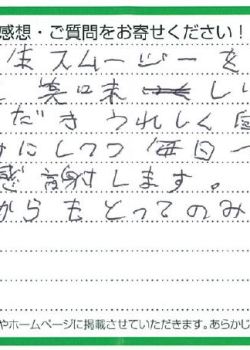 感想・ご質問をお寄せください!
生スムージーを
美味しい
だきうれしく感
みにしてつ毎日
感謝します。
からもとってのみ
やホームページに掲載させていただきます。あらかじ